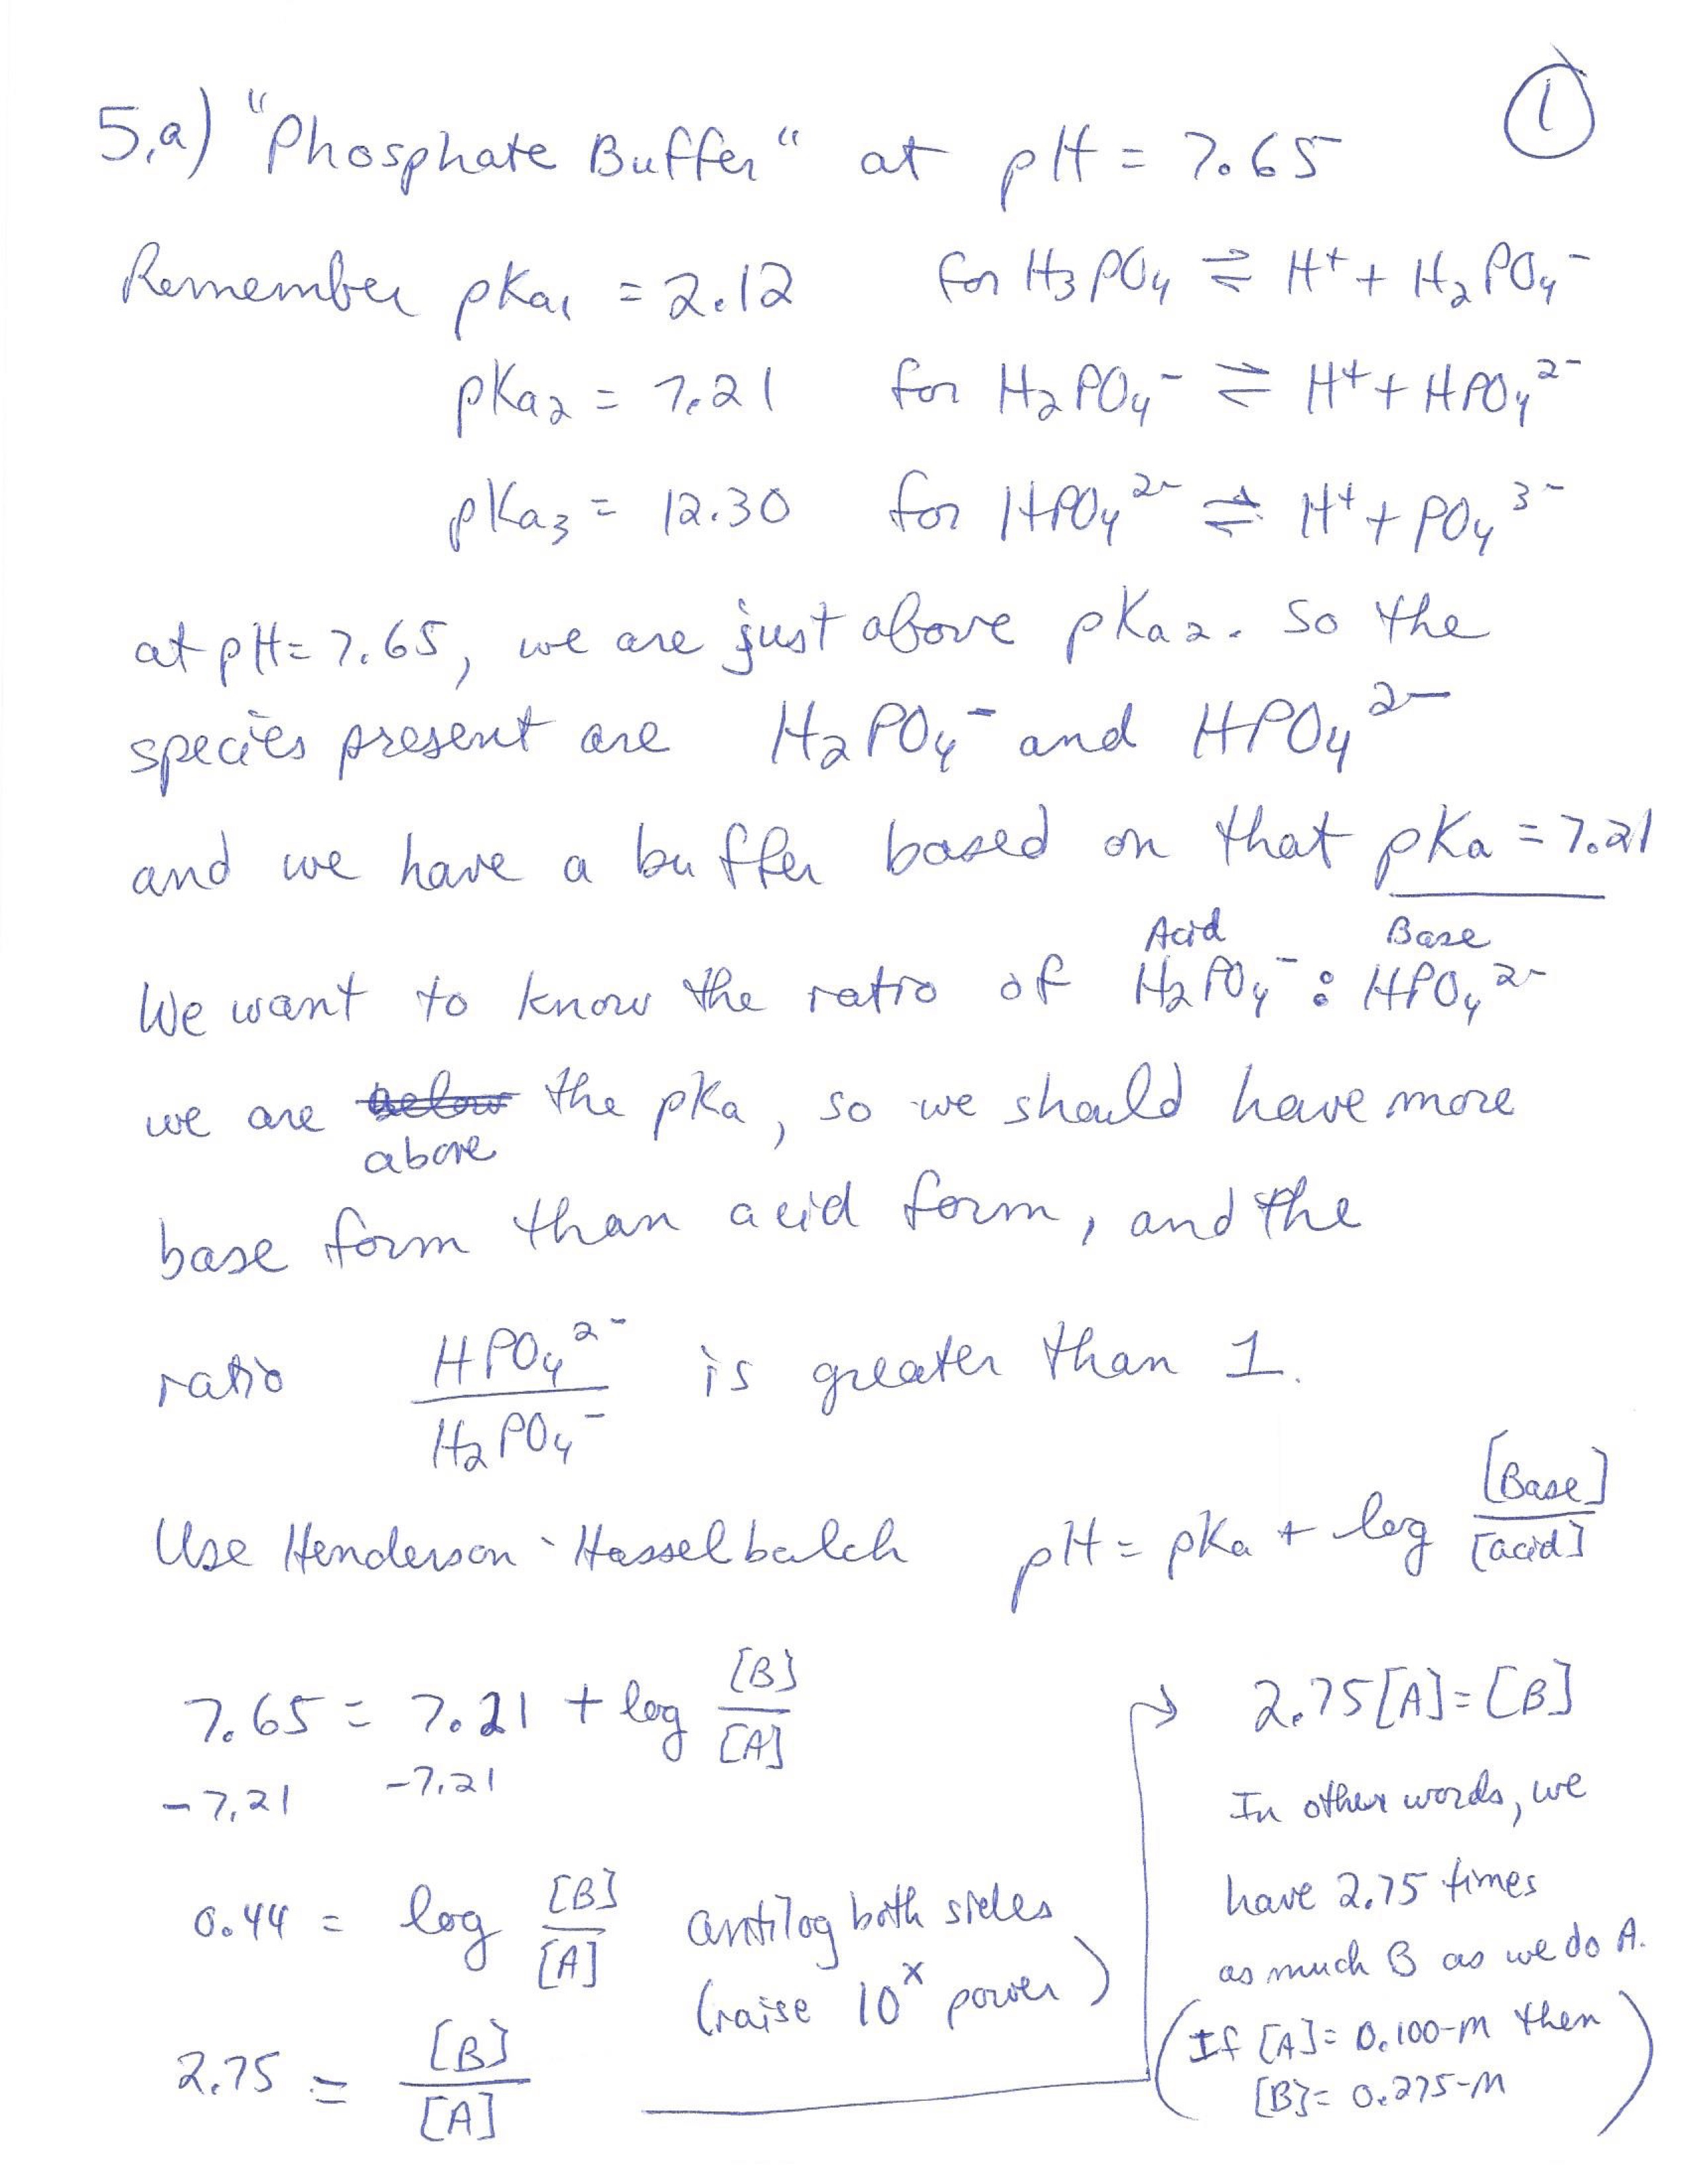 ①
5.a) "Phosphate Buffer" at pH = 7.65
Remember pKa₁ = 2.12 for H₃PO₄ ⇌ H⁺ + H₂PO₄⁻
pKa₂ = 7.21 for H₂PO₄⁻ ⇌ H⁺ + HPO₄²⁻
pKa₃ = 12.30 for HPO₄²⁻ ⇌ H⁺ + PO₄³⁻
at pH = 7.65, we are just above pKa₂. So the
species present are H₂PO₄⁻ and HPO₄²⁻
and we have a buffer based on that pKa = 7.21
Acid Base
We want to know the ratio of H₂PO₄⁻ : HPO₄²⁻
we are below the pKa, so we should have more
above
base form than acid form, and the
ratio HPO₄²⁻ / H₂PO₄⁻ is greater than 1.
Use Henderson-Hasselbalch pH = pKa + log [Base] / [acid]
7.65 = 7.21 + log [B] / [A]
-7.21 -7.21
0.44 = log [B] / [A] antilog both sides
(raise 10ˣ power)
2.75 = [B] / [A]
→ 2.75[A] = [B]
In other words, we
have 2.75 times
as much B as we do A.
(If [A] = 0.100-M then
[B] = 0.275-M)